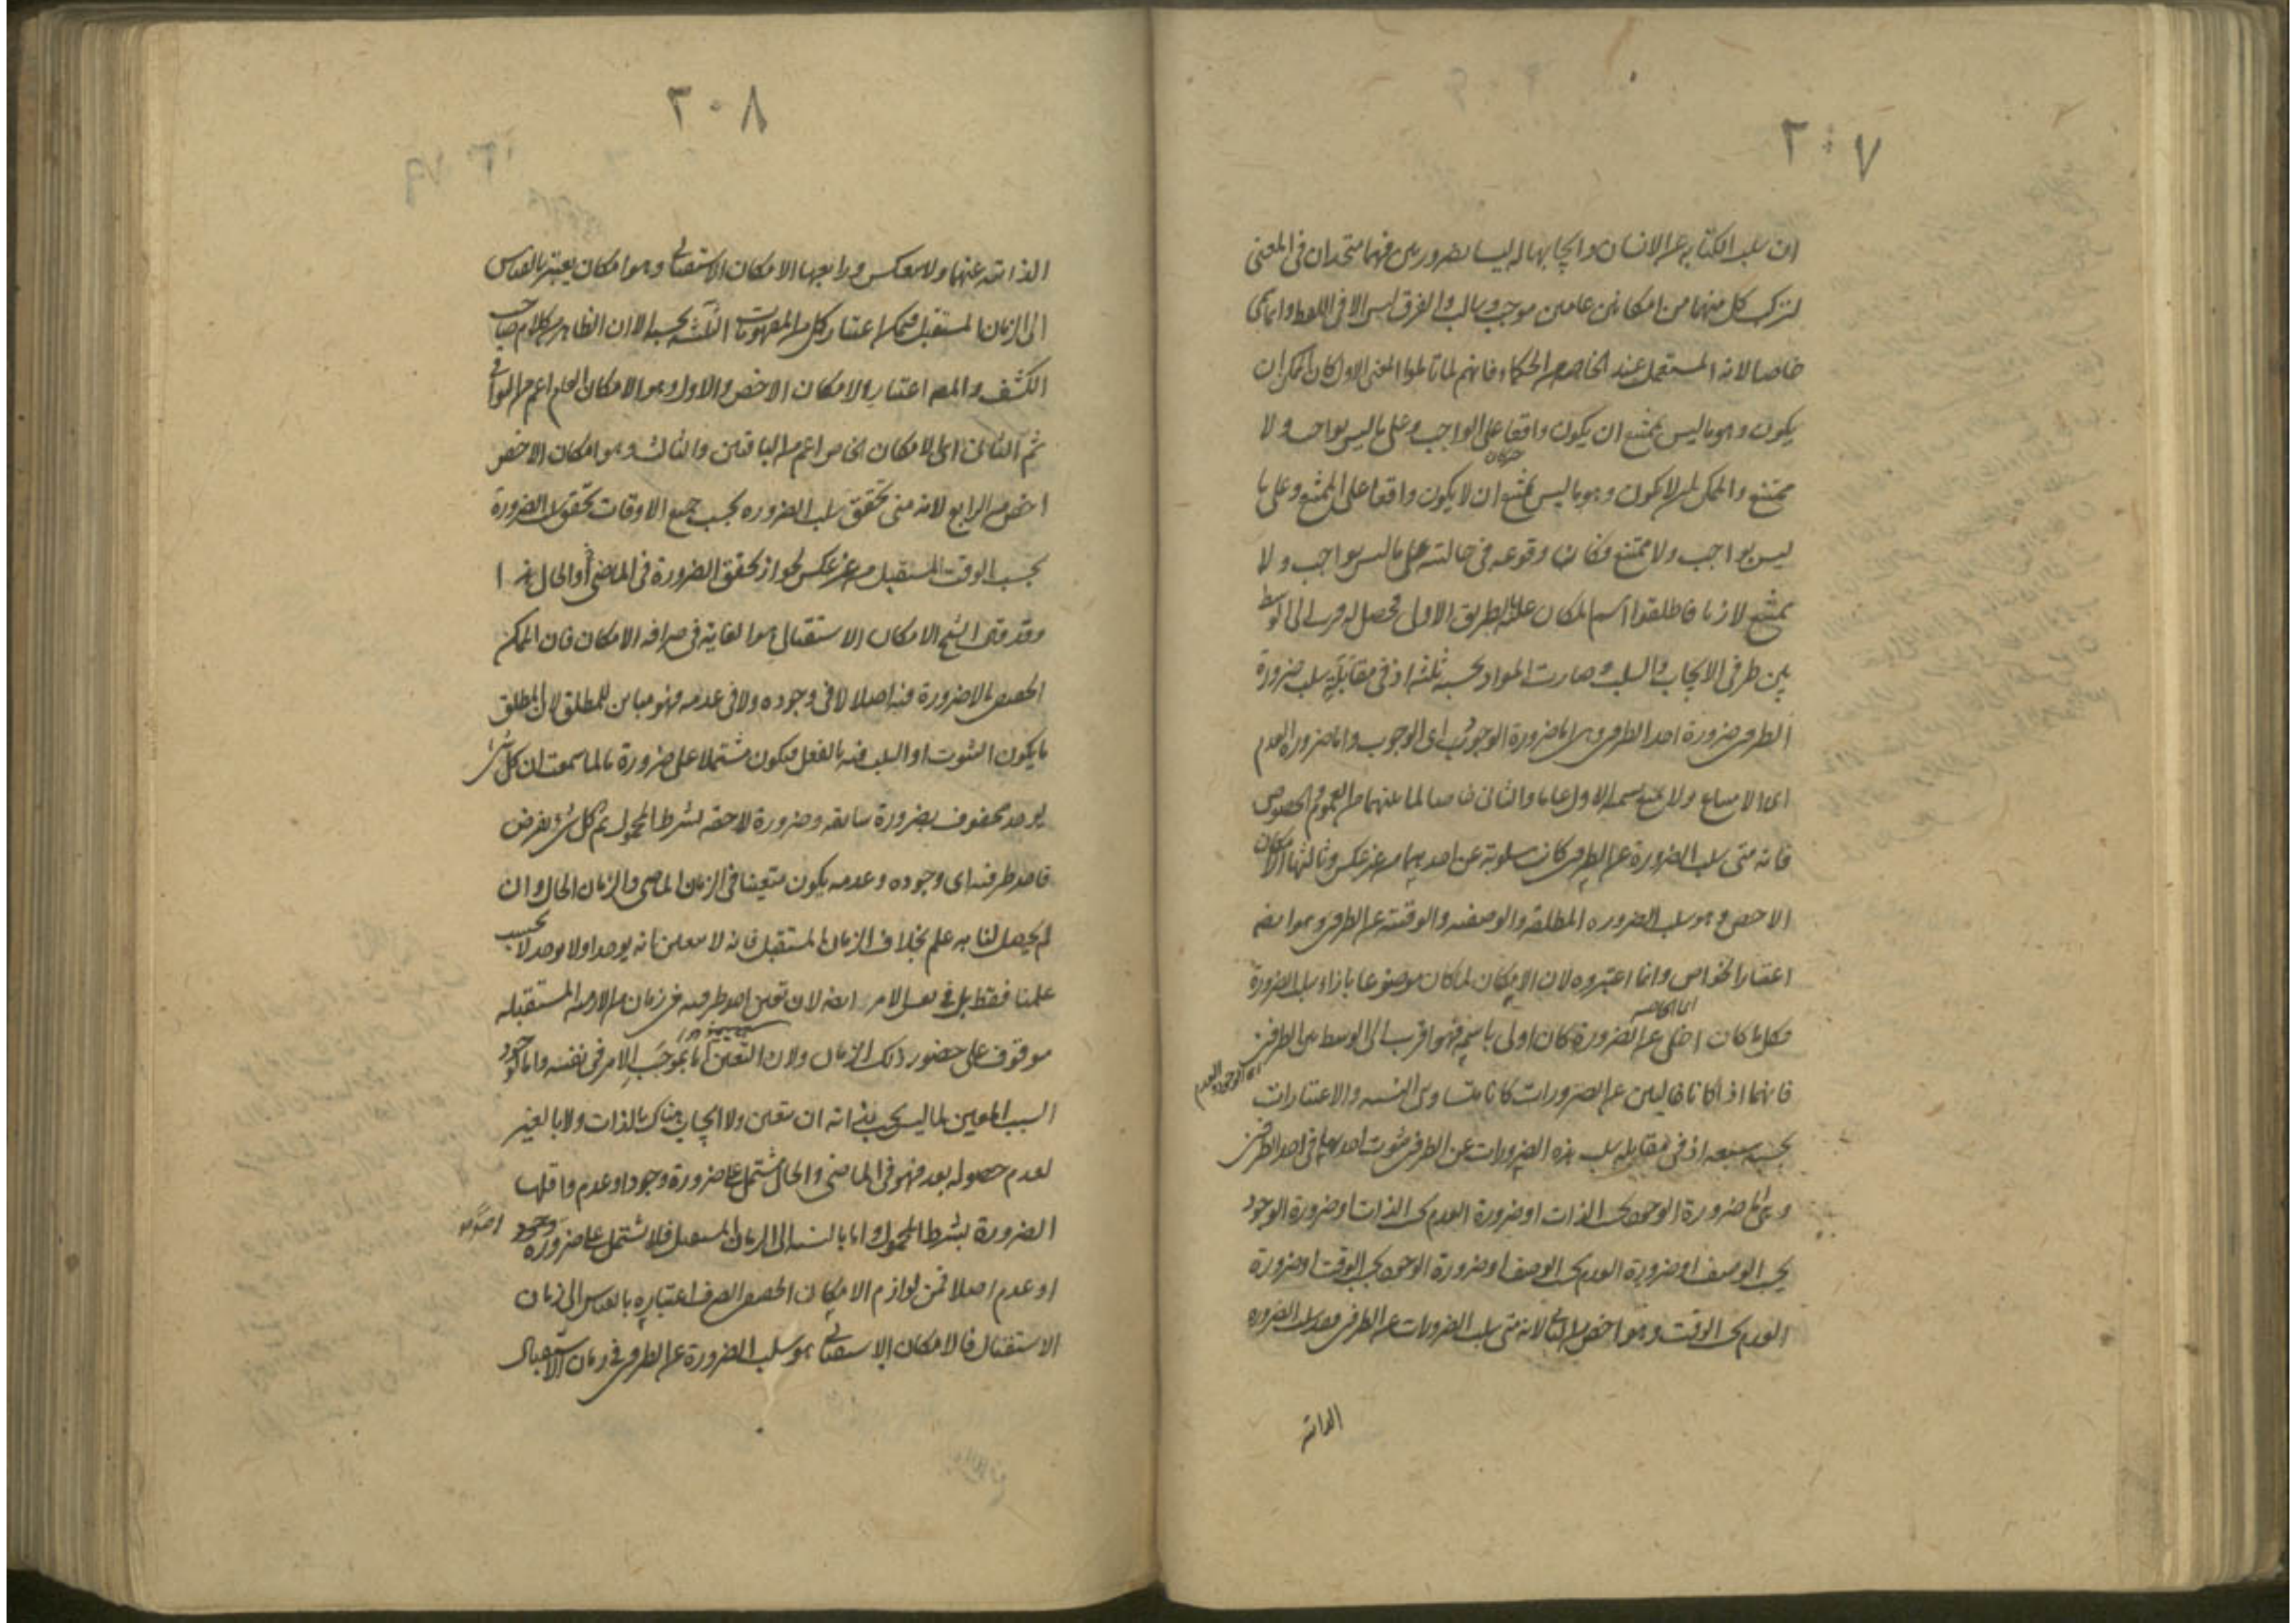 ٢٠٧
ان سلب الكتابة عن الانسان وايجابها له ليسا بضروريين فهما متحدان فى المعنى
لتركب كل منهما من امكانين عامين موجب وسالب والفرق ليس الا فى اللفظ وانما سمى
خاصا لانه المستعمل عند الخاصة من الحكماء فانهم لما تاملوا المعنى الاول كان الممكن ان
يكون وهو ما ليس بممتنع ان يكون واقعا على الواجب وعلى ما ليس بواجب ولا
ممتنع والممكن ان لا يكون وهو ما ليس بممتنع ان لا يكون واقعا على الممتنع وعلى ما
ليس بواجب ولا ممتنع وكان وقوعه فى حالتيه على ما ليس بواجب ولا
ممتنع لازما فاطلقوا اسم الامكان عليه بالطريق الاول فحصل له قرب الى الوسط
بين طرفى الايجاب والسلب وصارت المواد بحسبه ثلثة اذ فى مقابلة سلب ضرورة
الطرفين ضرورة احد الطرفين وهى اما ضرورة الوجود اى الوجوب واما ضرورة العدم
اى الامتناع ولا يمتنع تسمية الاول عاما والثانى خاصا لما بينهما من العموم والخصوص
فانه متى سلب الضرورة عن الطرفين كانت مسلوبة عن احدهما من غير عكس وثالثها الامكان
الاخص وهو سلب الضرورة المطلقة والوصفية والوقتية عن الطرفين وهو ايضا
اعتبار الخواص وانما اعتبروه لان الامكان لما كان موضوعا بازاء سلب الضرورة
فكلما كان اخلى عن الضرورة كان اولى باسمه فهو اقرب الى الوسط بين الطرفين
اى الوجود والعدم
فانهما اذا كانا خاليين عن الضرورات كانا متساويى النسبة والاعتبارات
بحسبه سبعة اذ فى مقابلة سلب هذه الضرورات عن الطرفين ثبوت احديها فى احد الطرفين
وهى اما ضرورة الوجود بحسب الذات او ضرورة العدم بحسب الذات او ضرورة الوجود
بحسب الوصف او ضرورة العدم بحسب الوصف او ضرورة الوجود بحسب الوقت او ضرورة
العدم بحسب الوقت وهو اخص من الثانى لانه متى سلب الضرورات عن الطرفين فقد سلب الضرورة
الذاتية
٢٠٨
الذاتية عنهما ولا عكس ورابعها الامكان الاستقبالى وهو امكان يعتبر بالقياس
الى الزمان المستقبل فيمكن اعتبار كل من المفهومات الثلثة بحسبه الا ان الظاهر من كلام صاحب
الكشف والمص اعتبار الامكان الاخص والاول وهو الامكان العام اعم من البواقى
ثم الثانى اى الامكان الخاص اعم من الباقيين والثالث وهو امكان الاخص
اخص من الرابع لانه متى تحقق سلب الضرورة بحسب جميع الاوقات تحقق سلب الضرورة
بحسب الوقت المستقبل من غير عكس لجواز تحقق الضرورة فى الماضى او الحال هذا
وقد قال الشيخ الامكان الاستقبالى هو الغاية فى صرافة الامكان فان الممكن
الحقيقى ما لا ضرورة فيه اصلا لا فى وجوده ولا فى عدمه فهو مباين للمطلق لان المطلق
ما يكون الثبوت او السلب فيه بالفعل فيكون مشتملا على ضرورة ما لما سمعت ان كل شىء
يوجد محفوف بضرورة سابقة وضرورة لاحقة بشرط المحمول ثم كل شىء يفرض
فاحد طرفيه اى وجوده وعدمه يكون متعينا فى الزمان الماضى والزمان الحال وان
لم يحصل لنا به علم بخلاف الزمان المستقبل فانه لا يتعين انه يوجد او لا يوجد لا بحسب
علمنا فقط بل فى نفس الامر ايضا لان تعين احد طرفيه فى زمان من الازمنة المستقبلة
موقوف على حضور ذلك الزمان ولان التعين اما بموجب الامر فى نفسه واما لوجود
السبب المعين لما ليس يجب بذاته ان يتعين ولا ايجاب هناك بالذات ولا بالغير
لعدم حصوله بعد فهو فى الماضى والحال مشتمل على ضرورة وجود او عدم واقلها
الضرورة بشرط المحمول واما بالنسبة الى الزمان المستقبل فلا يشتمل على ضرورة وجود
او عدم اصلا فمن لوازم الامكان الحقيقى الصرف اعتباره بالقياس الى زمان
الاستقبال فالامكان الاستقبالى هو سلب الضرورة عن الطرفين فى زمان الاستقبال